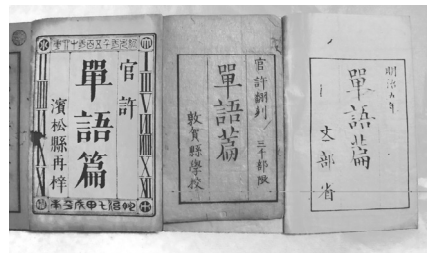 官許
單語篇
濱松縣再梓
官許翻刻ノ三千部限
單語篇
敦賀縣學校
明治五年
單語篇
文部省